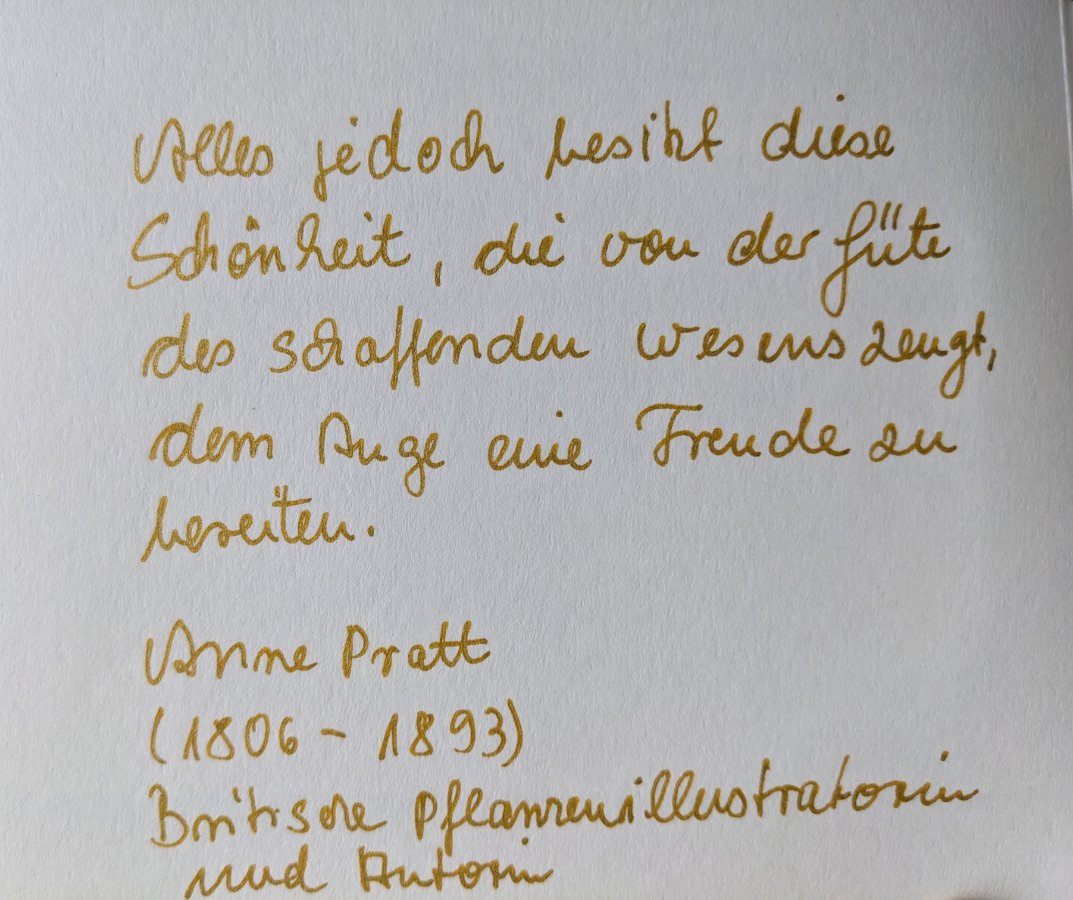 Alles jedoch besitzt diese
Schönheit, die von der Güte
des schaffenden Wesens zeugt,
dem Auge eine Freude zu
bereiten.
Anne Pratt
(1806 - 1893)
Britische Pflanzenillustratorin
und Autorin